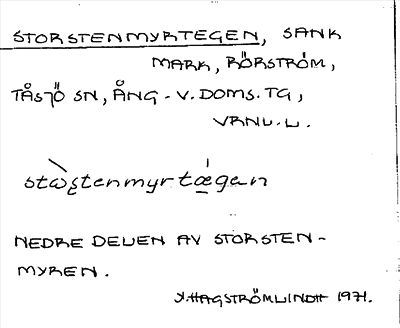 STORSTENMYRTEGEN, SANK
MARK, RÖRSTRÖM,
TÅSJÖ SN, ÅNG. V. DOMS. TG,
VRNL. L.
NEDRE DELEN AV STORSTEN-
MYREN.
Y. HAGSTRÖMLINDH 1971.